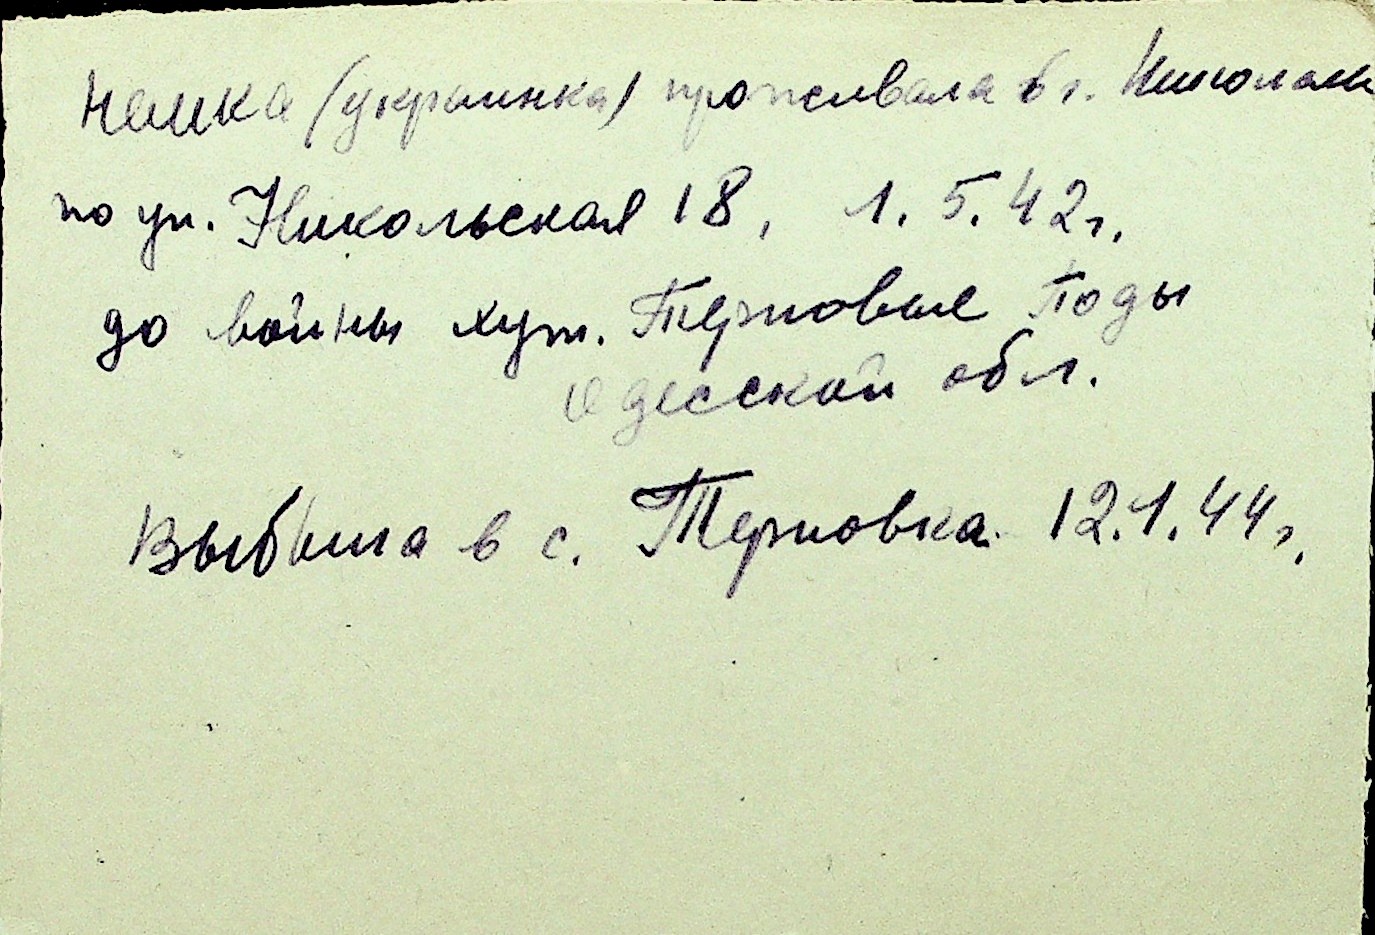 немка (украинка) проживала в г. Николаев
по ул. Никольская 18, 1.5.42г.
до войны хут. Терновые Поды
Одесской обл.
Выбыла в с. Терновка 12.1.44г.